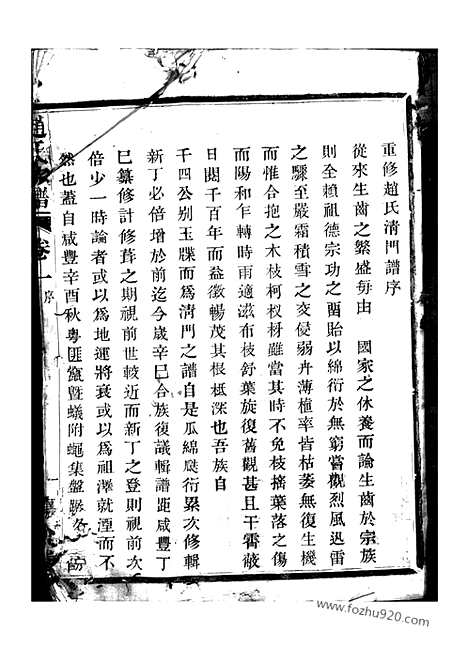 重修趙氏淸門譜序
從來生齒之繁盛毎由　國家之休養而論生齒於宗族
則全賴祖德宗功之留貽以綿衍於無窮當觀烈風迅雷
之驟至嚴霜積雪之交侵弱卉薄植率皆枯萎無復生機
而惟合抱之木枝柯杈枒雖當其時不免枝摘葉落之傷
而陽和乍轉時雨適滋布枝舒葉旋復舊觀甚且干霄蔽
日閱千百年而益徵暢茂其根柢深也吾族自
千四公別玉牒而爲淸門之譜自是瓜綿瓞衍累次修輯
新丁必倍增於前迄今歲辛巳合族復議輯譜距咸豐丁
巳纂修計修葺之期視前世較近而新丁之登則視前次
倍少一時論者或以爲地運將衰或以爲祖澤就湮而不
然也蓋自咸豐辛酉秋粤匪竄曁蟻附蠅集盤
趙氏
譜
卷一
序
www.fozhu920.com